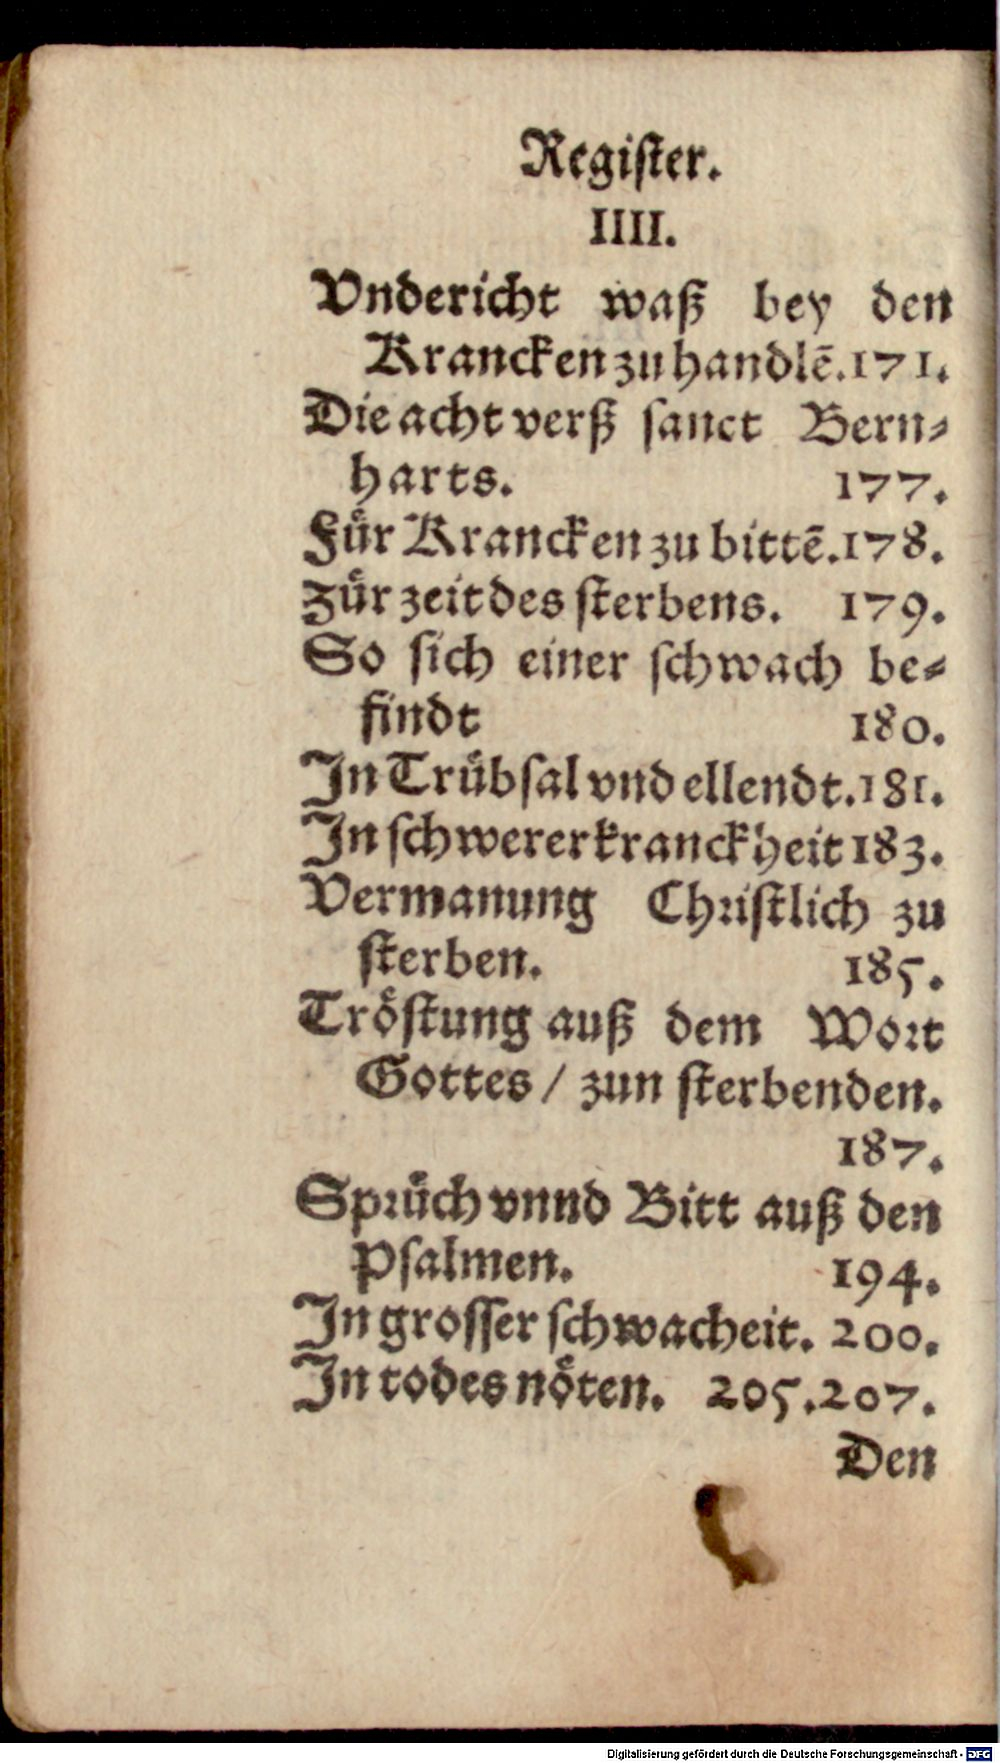 Regiſter.
IIII.
Vndericht waß bey den
Krancken zu handlẽ. 171.
Die acht verß ſanct Bern⸗
harts. 177.
Fuͤr Krancken zu bittẽ. 178.
Zuͤr zeit des ſterbens. 179.
So ſich einer ſchwach be⸗
findt 180.
In Truͤbſal vnd ellendt. 181.
In ſchwerer kranckheit 183.
Vermanung Chriſtlich zu
ſterben. 185.
Troͤſtung auß dem Wort
Gottes / zun ſterbenden.
187.
Spruͤch vnnd Bitt auß den
Pſalmen. 194.
In groſſer ſchwacheit. 200.
In todes noͤten. 205. 207.
Den
Digitalisierung gefördert durch die Deutsche Forschungsgemeinschaft - DFG